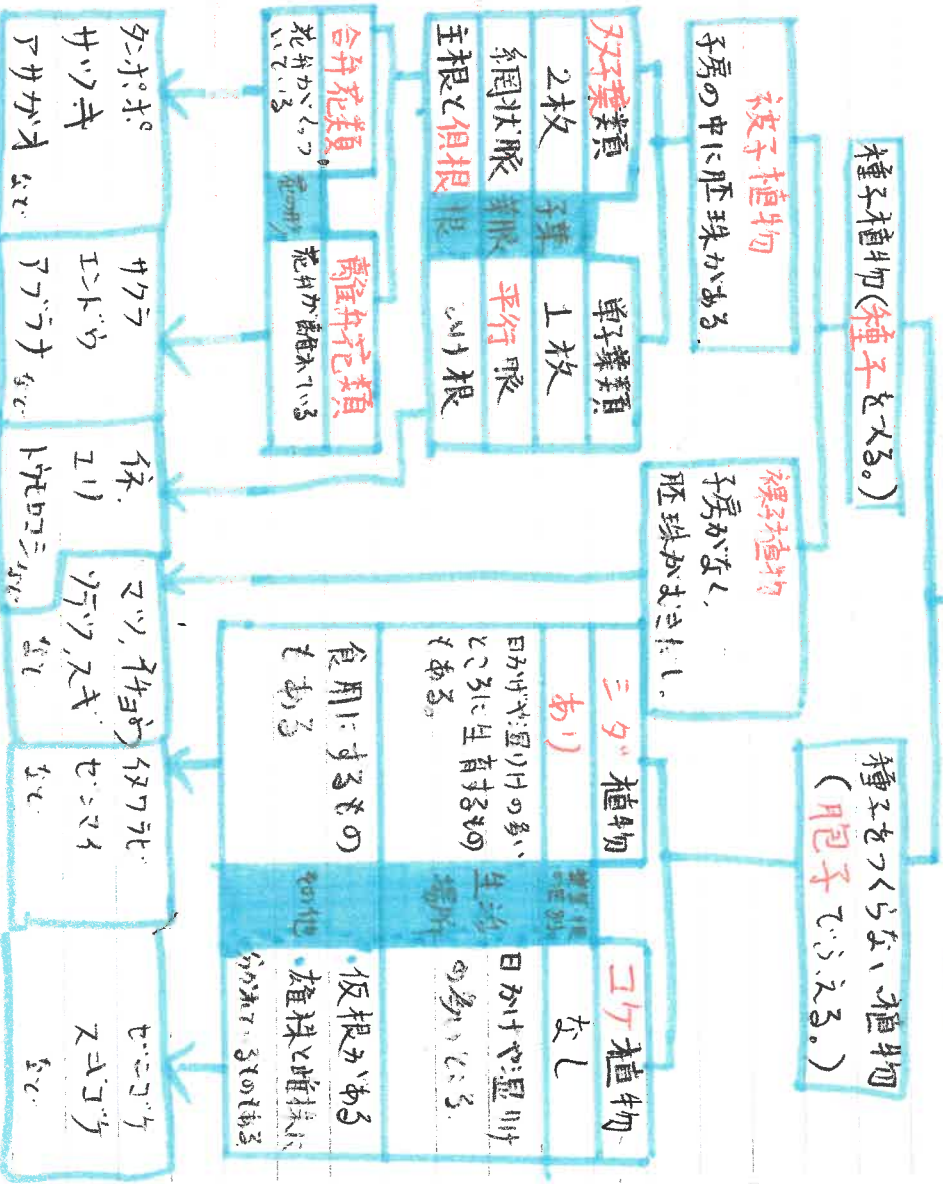 種子植物(種子をつくる。)
種子をつくらない植物
(胞子でふえる。)
被子植物
子房の中に胚珠がある.
裸子植物
子房がなく、
胚珠がむきだし。
双子葉類
子葉
単子葉類
2枚
葉脈
1枚
網状脈
根
平行脈
主根と側根
ひげ根
合弁花類
花弁がくっつ
いている
花の形
離弁花類
花弁が離れている
シダ植物
コケ植物
あり
なし
日かげや湿りけの多い
ところに生育するもの
もある。
生活
場所
日かげや湿りけ
の多いところ
食用にするもの
もある
その他
・仮根がある
・雄株と雌株に
分かれているものもある
タンポポ
サツキ
アサガオ など
サクラ
エンドウ
アブラナ など
イネ、
ユリ
トウモロコシ など
マツ,イチョウ
ソテツ,スギ
など
イヌワラビ
ゼンマイ
など
ゼニゴケ
スギゴケ
など